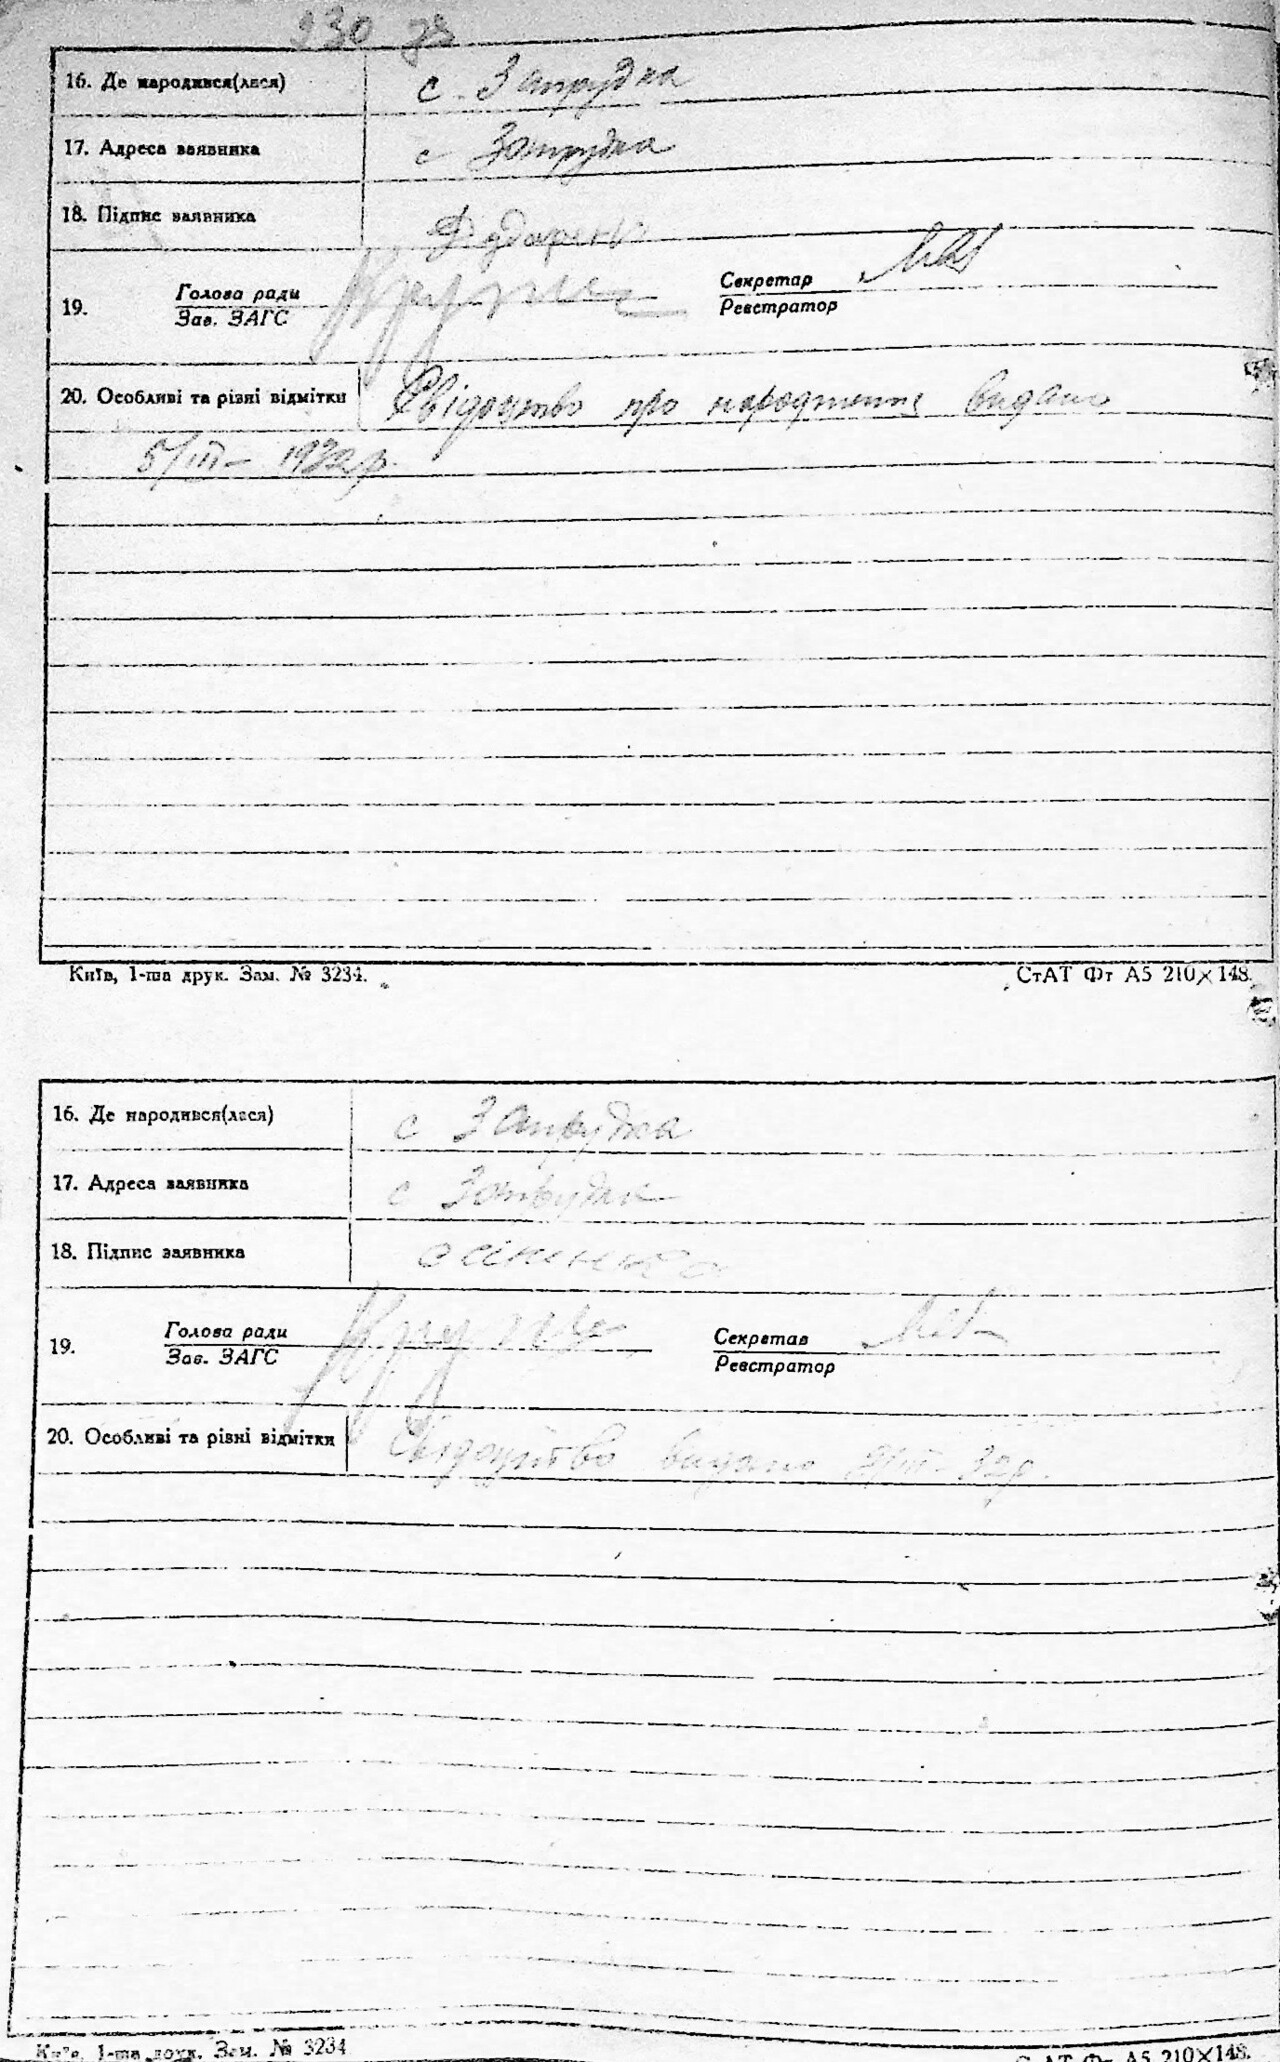 930 зв
16. Де народився(лася) с. Запрудка
17. Адреса заявника с Запрудка
18. Підпис заявника
Голова ради Секретар
19.
Зав. ЗАГС Реєстратор
20. Особливі та різні відмітки Свідоцтво про народження видано
5/III – 1932 р.
Київ, 1-ша друк. Зам. № 3234. СтАТ Фт А5 210×148.
16. Де народився(лася) с Запрудка
17. Адреса заявника с Запрудка
18. Підпис заявника
Голова ради Секретар
19.
Зав. ЗАГС Реєстратор
20. Особливі та різні відмітки Свідоцтво видано /III – 32р.
Київ, 1-ша друк. Зам. № 3234 СтАТ Фт А5 210×148.